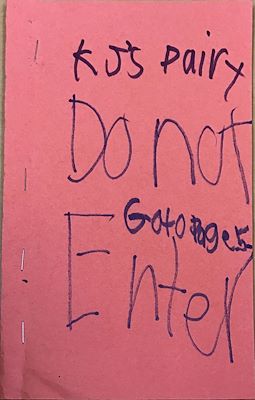 KJ's Dairy
Do not
Go to page 5
Enter